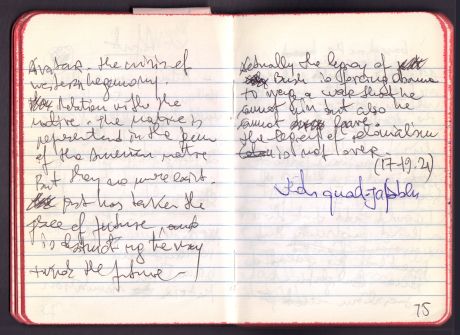 Avatar. the crisis of
western hegemony.
Relation with the
native. The native is
represented in the form
of the American native
But they no more exist.
past has taken the
place of future, and
is obstructing the way
towards the future –
Actually the legacy of
Bush is forcing Obama
to wage a war that he
cannot win but also he
cannot leave.
The legacy of colonialism
is not over.
(17-19.21)
75